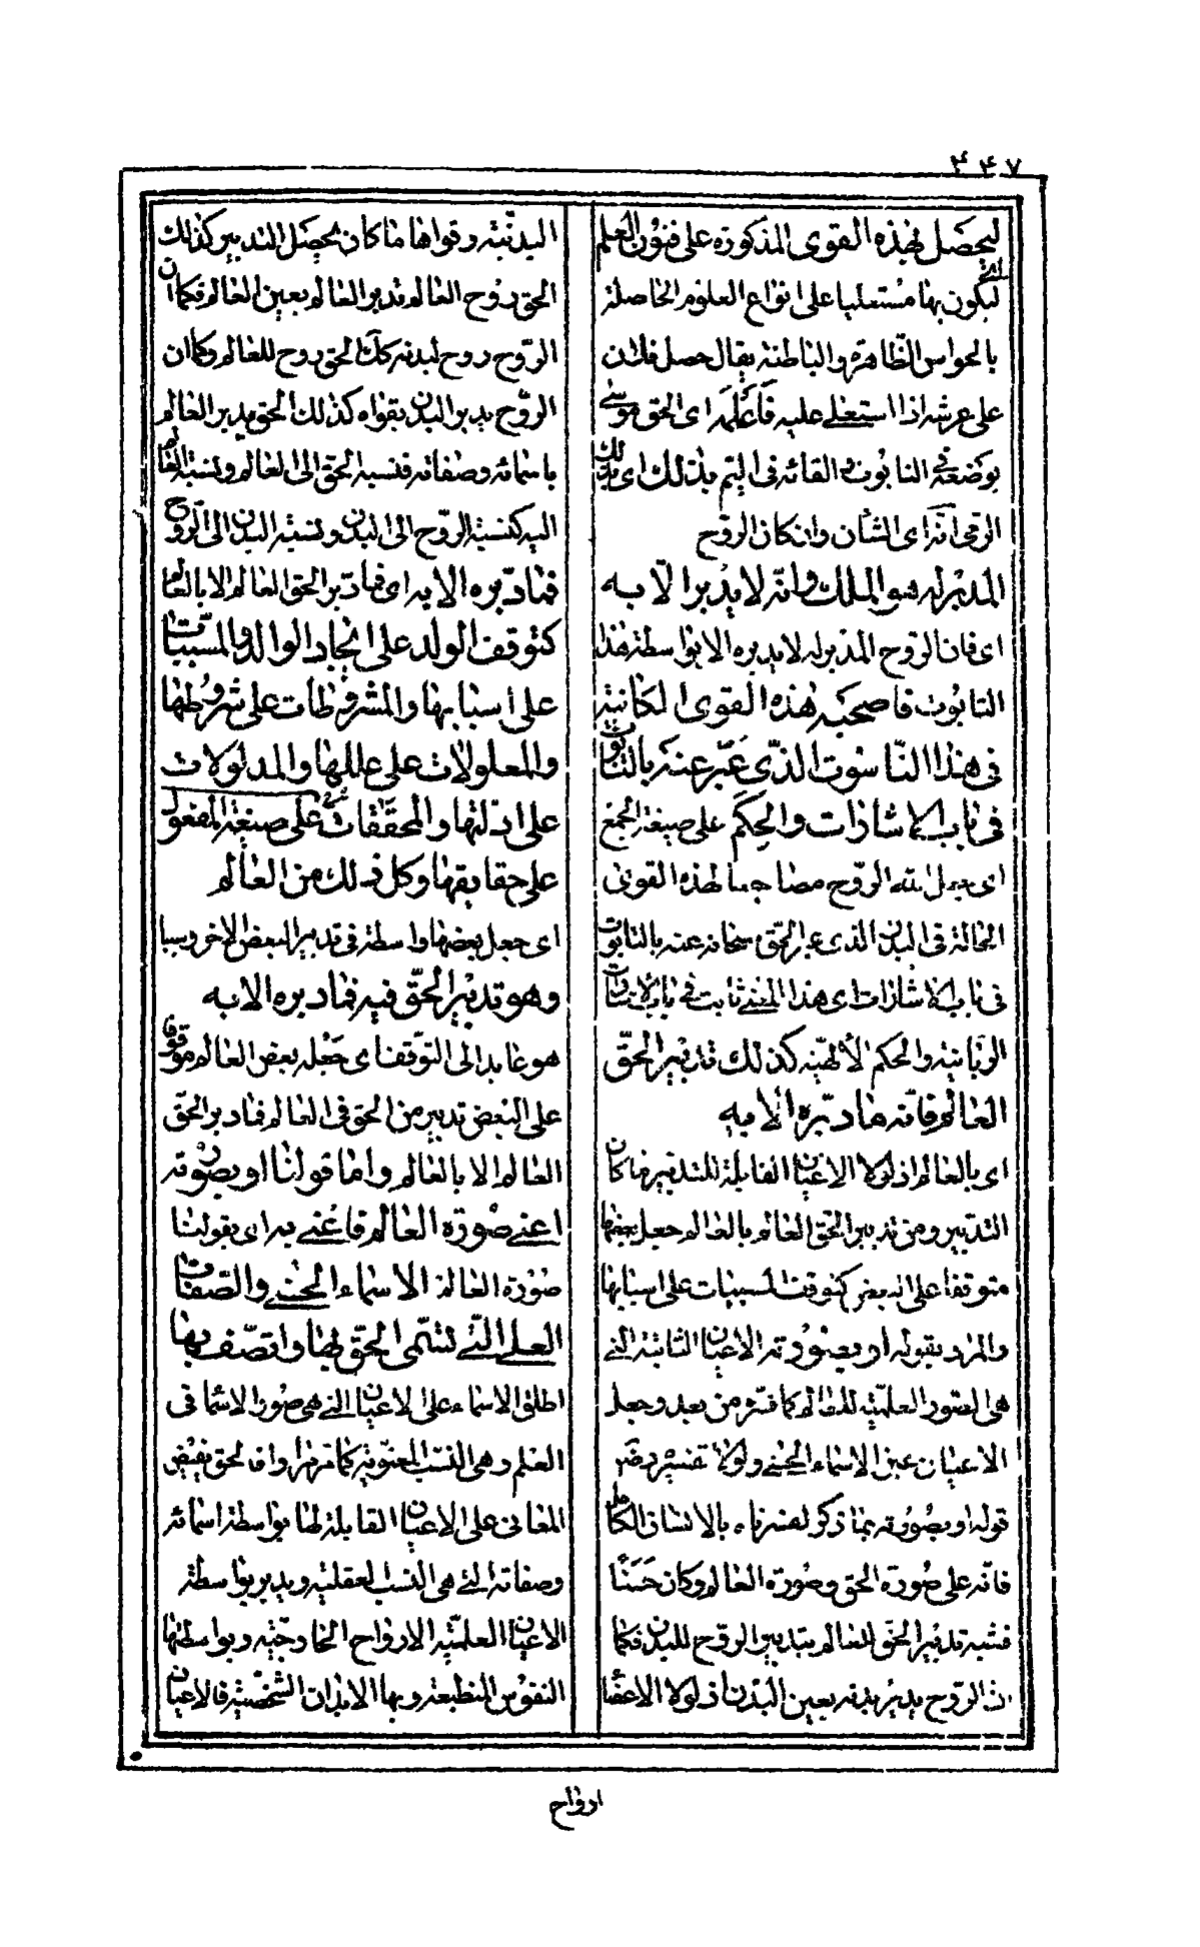 ۴۴۷
ليحصل بهذه القوى المذكورة على فنون العلم
ليكون بها مستعليا على انواع العلوم الحاصلة
بالحواس الظاهرة والباطنة يقال حصل فلان
على عرشه اذا استعلى عليه فاعلمه اى الحق موسى
بوضعه فى التابوت والقائه فى اليم بذلك اى بذلك
الرمى انه اى الشأن وان كان الروح
المدبر له هو الملك فانه لا يدبر الا به
اى فان الروح المدبر له لا يدبره الا بواسطة هذا
التابوت فاصحبه هذه القوى الكائنة
فى هذا الناسوت الذى عبر عنه بالتابوت
فى باب الاشارات والحكم على صيغة الجمع
اى جعل الله الروح مصاحبا لهذه القوى
الحالة فى البدن الذى عبر الحق سبحانه عنه بالتابوت
فى باب الاشارات اى هذا المعنى ثابت فى باب الاشارات
الربانية والحكم الالهية كذلك تدبير الحق
العالم فانه ما دبره الا به
اى بالعالم اذ لولا الاعيان القابلة للتدبير ما كان
التدبير ومن تدبير الحق العالم بالعالم جعل بعضها
متوقفا على البعض كتوقف المسببات على اسبابها
والمراد بقوله او بصورته الاعيان الثابتة التى
هى الصور العلمية للعالم كما فسره من بعد وجعل
الاعيان عين الاسماء الحسنى ولولا تفسيره رضى
قوله او بصورته بما ذكر لفسرناه بالانسان الكامل
فانه على صورة الحق وصورة العالم وكان حسنا
فشبه تدبير الحق للعالم بتدبير الروح للبدن فكما
ان الروح يدبر بدنه بعين البدن اذ لولا الاعضاء
البدنية وقواها ما كان يحصل التدبير كذلك
الحق روح العالم تدبر العالم بعين العالم فكما ان
الروح روح لبدنه كذلك الحق روح للعالم وكما ان
الروح يدبر البدن بقواه كذلك الحق يدبر العالم
باسمائه وصفاته فنسبة الحق الى العالم ونسبة العالم
اليه كنسبة الروح الى البدن ونسبة البدن الى الروح
فما دبره الا به اى فما دبر الحق العالم الا بالعالم
كتوقف الولد على ايجاد الوالد والمسببات
على اسبابها والمشروطات على شروطها
والمعلولات على عللها والمدلولات
على ادلتها والمحققات على صيغة المفعول
على حقايقها وكل ذلك من العالم
اى جعل بعضها واسطة فى تدبير البعض الاخر وسببا
وهو تدبير الحق فيه فما دبره الا به
هو عايد الى التوقف اى جعله بعض العالم موقوفا
على البعض تدبير من الحق فى العالم فما دبر الحق
العالم الا بالعالم واما قولنا او بصورته
اعنى صورة العالم فاعنى به اى بقولنا
صورة العالم الاسماء الحسنى والصفات
العلى التى تسمى الحق بها واتصف بها
اطلق الاسماء على الاعيان التى هى صور الاسماء فى
العلم وهى النسب المعنوية كما مر مرارا فالحق يفيض
المعانى على الاعيان القابلة لها بواسطة اسمائه
وصفاته التى هى النسب العقلية ويدبر بواسطة
الاعيان العلمية الارواح الخارجية وبواسطتها
النفوس المنطبعة وبها الابدان الشخصية فالاعيان
ارواح